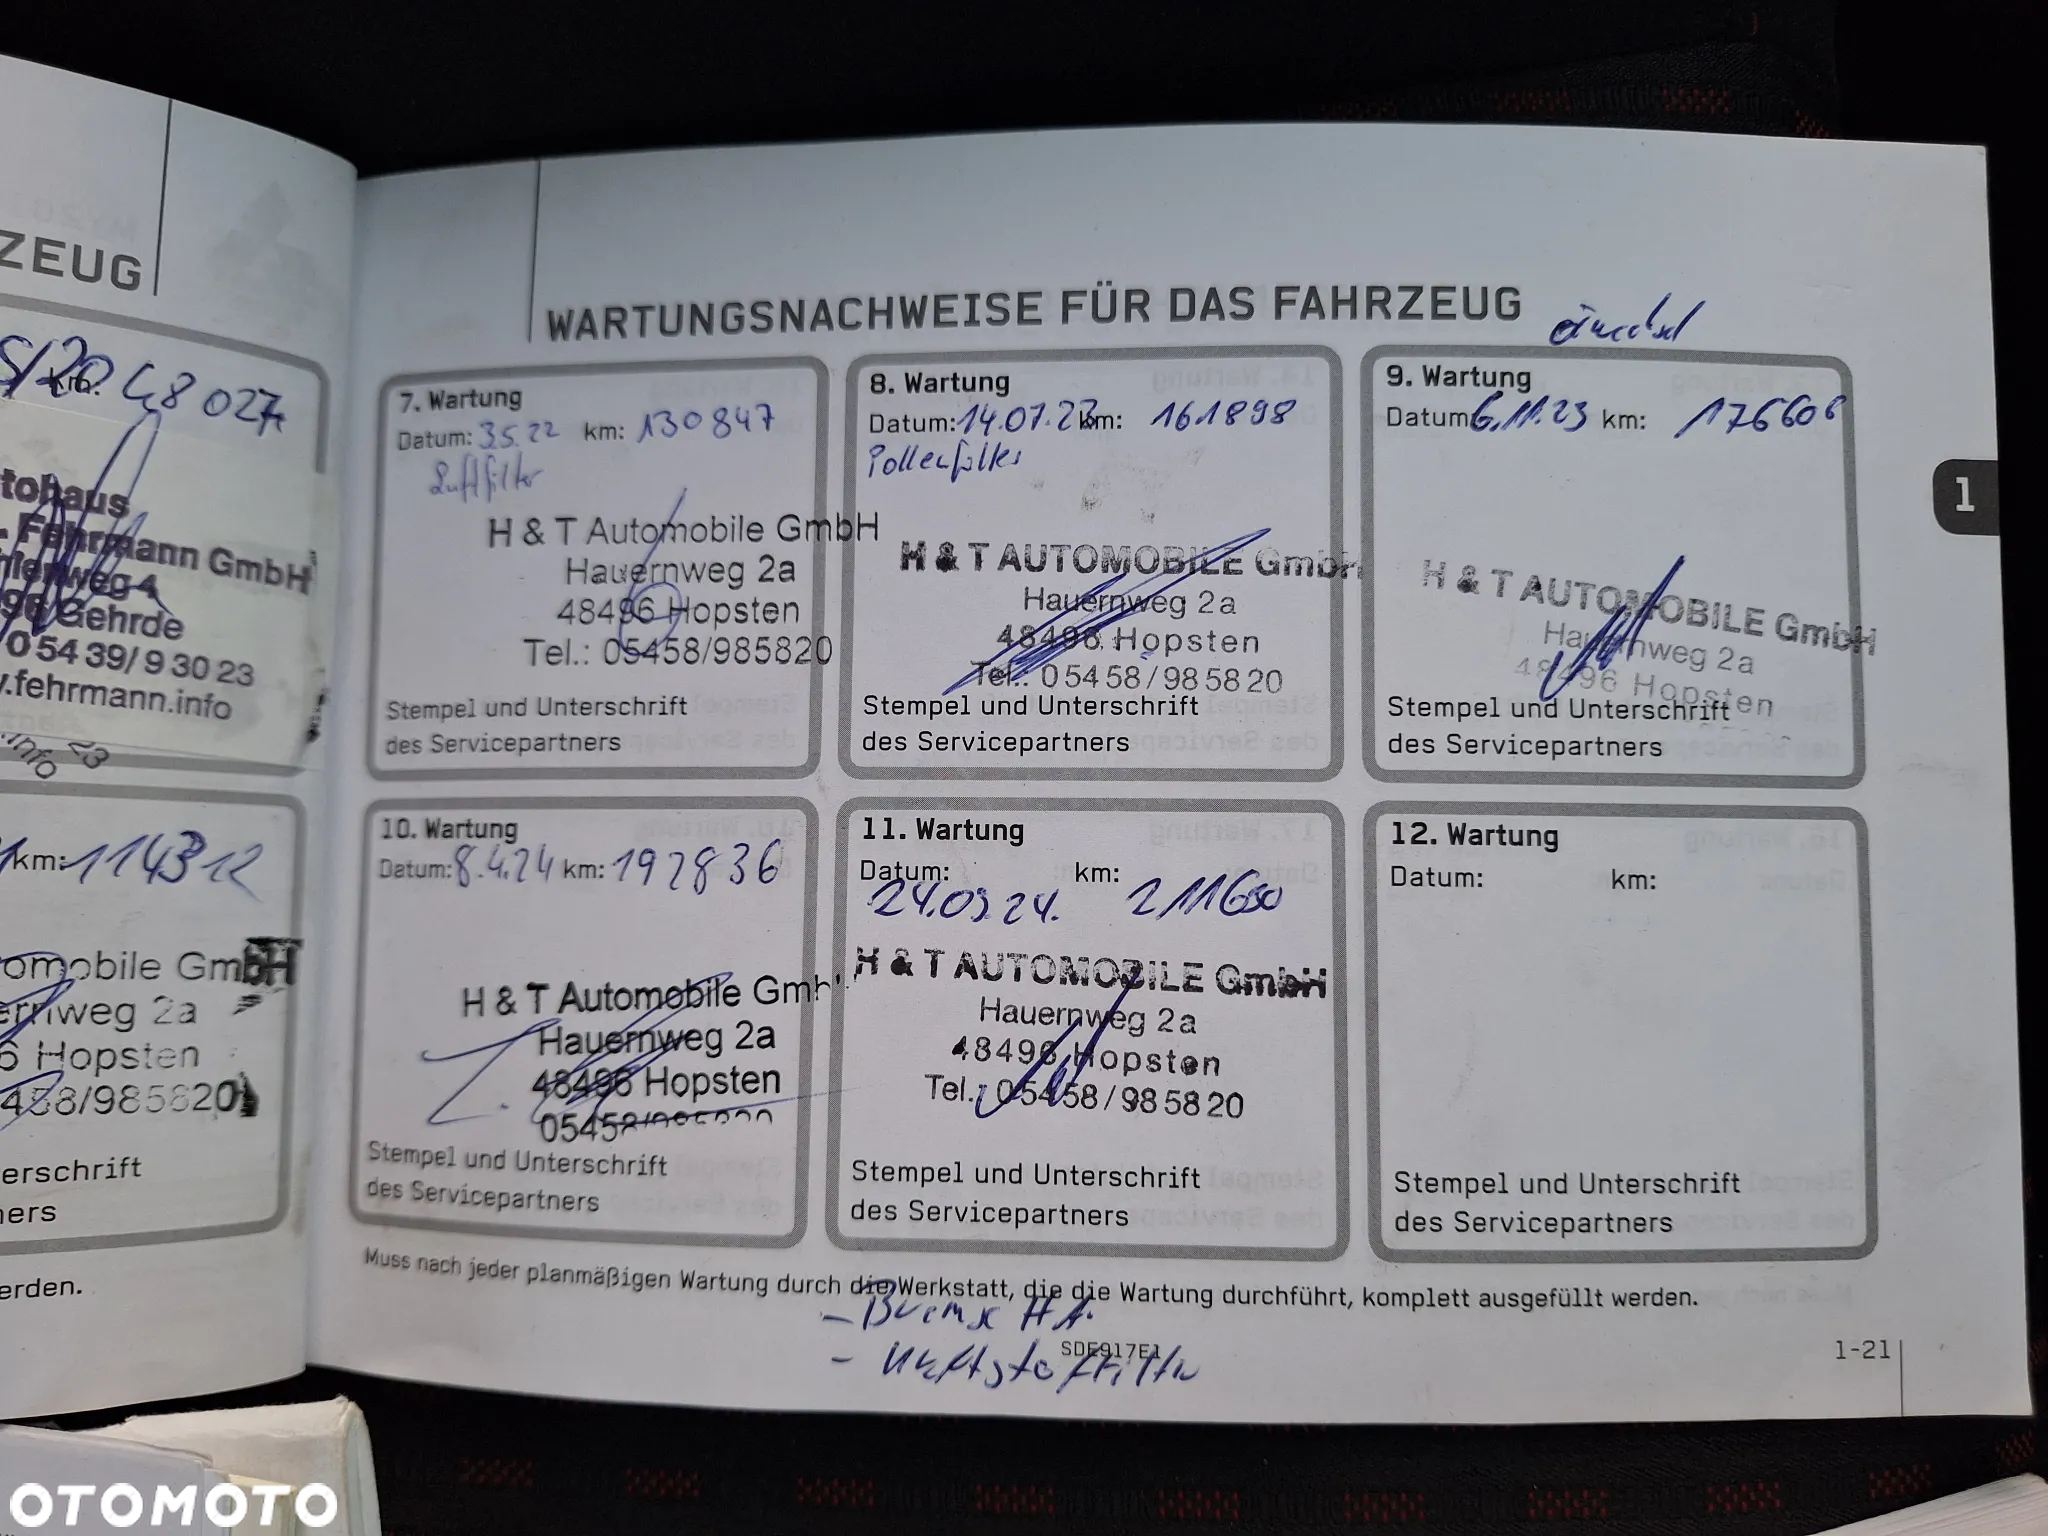 ZEUG
5/20 km: 48 027
tohaus
. Fehrmann GmbH
hlenweg 4
96 Gehrde
05439/93023
v.fehrmann.info
km: 114312
omobile GmbH
ernweg 2a
6 Hopsten
458/985820
erschrift
ners
erden.
WARTUNGSNACHWEISE FÜR DAS FAHRZEUG
7. Wartung
Datum: 3.5.22 km: 130847
Luftfilter
H & T Automobile GmbH
Hauernweg 2a
48496 Hopsten
Tel.: 05458/985820
Stempel und Unterschrift
des Servicepartners
8. Wartung
Datum: 14.07.23 km: 161898
Pollenfilter
H & T AUTOMOBILE GmbH
Hauernweg 2a
48496 Hopsten
Tel.: 05458/985820
Stempel und Unterschrift
des Servicepartners
9. Wartung
Datum: 6.11.23 km: 176606
H & T AUTOMOBILE GmbH
Hauernweg 2a
48496 Hopsten
Stempel und Unterschrift
des Servicepartners
1
10. Wartung
Datum: 8.4.24 km: 192836
H & T Automobile GmbH
Hauernweg 2a
48496 Hopsten
05458/985820
Stempel und Unterschrift
des Servicepartners
11. Wartung
Datum: km:
24.09.24. 211650
H & T AUTOMOBILE GmbH
Hauernweg 2a
48496 Hopsten
Tel.: 05458/985820
Stempel und Unterschrift
des Servicepartners
12. Wartung
Datum: km:
Stempel und Unterschrift
des Servicepartners
Muss nach jeder planmäßigen Wartung durch die Werkstatt, die die Wartung durchführt, komplett ausgefüllt werden.
- Bremse HA.
SDE917E1
- Kraftstofffilter
1-21
OTOMOTO